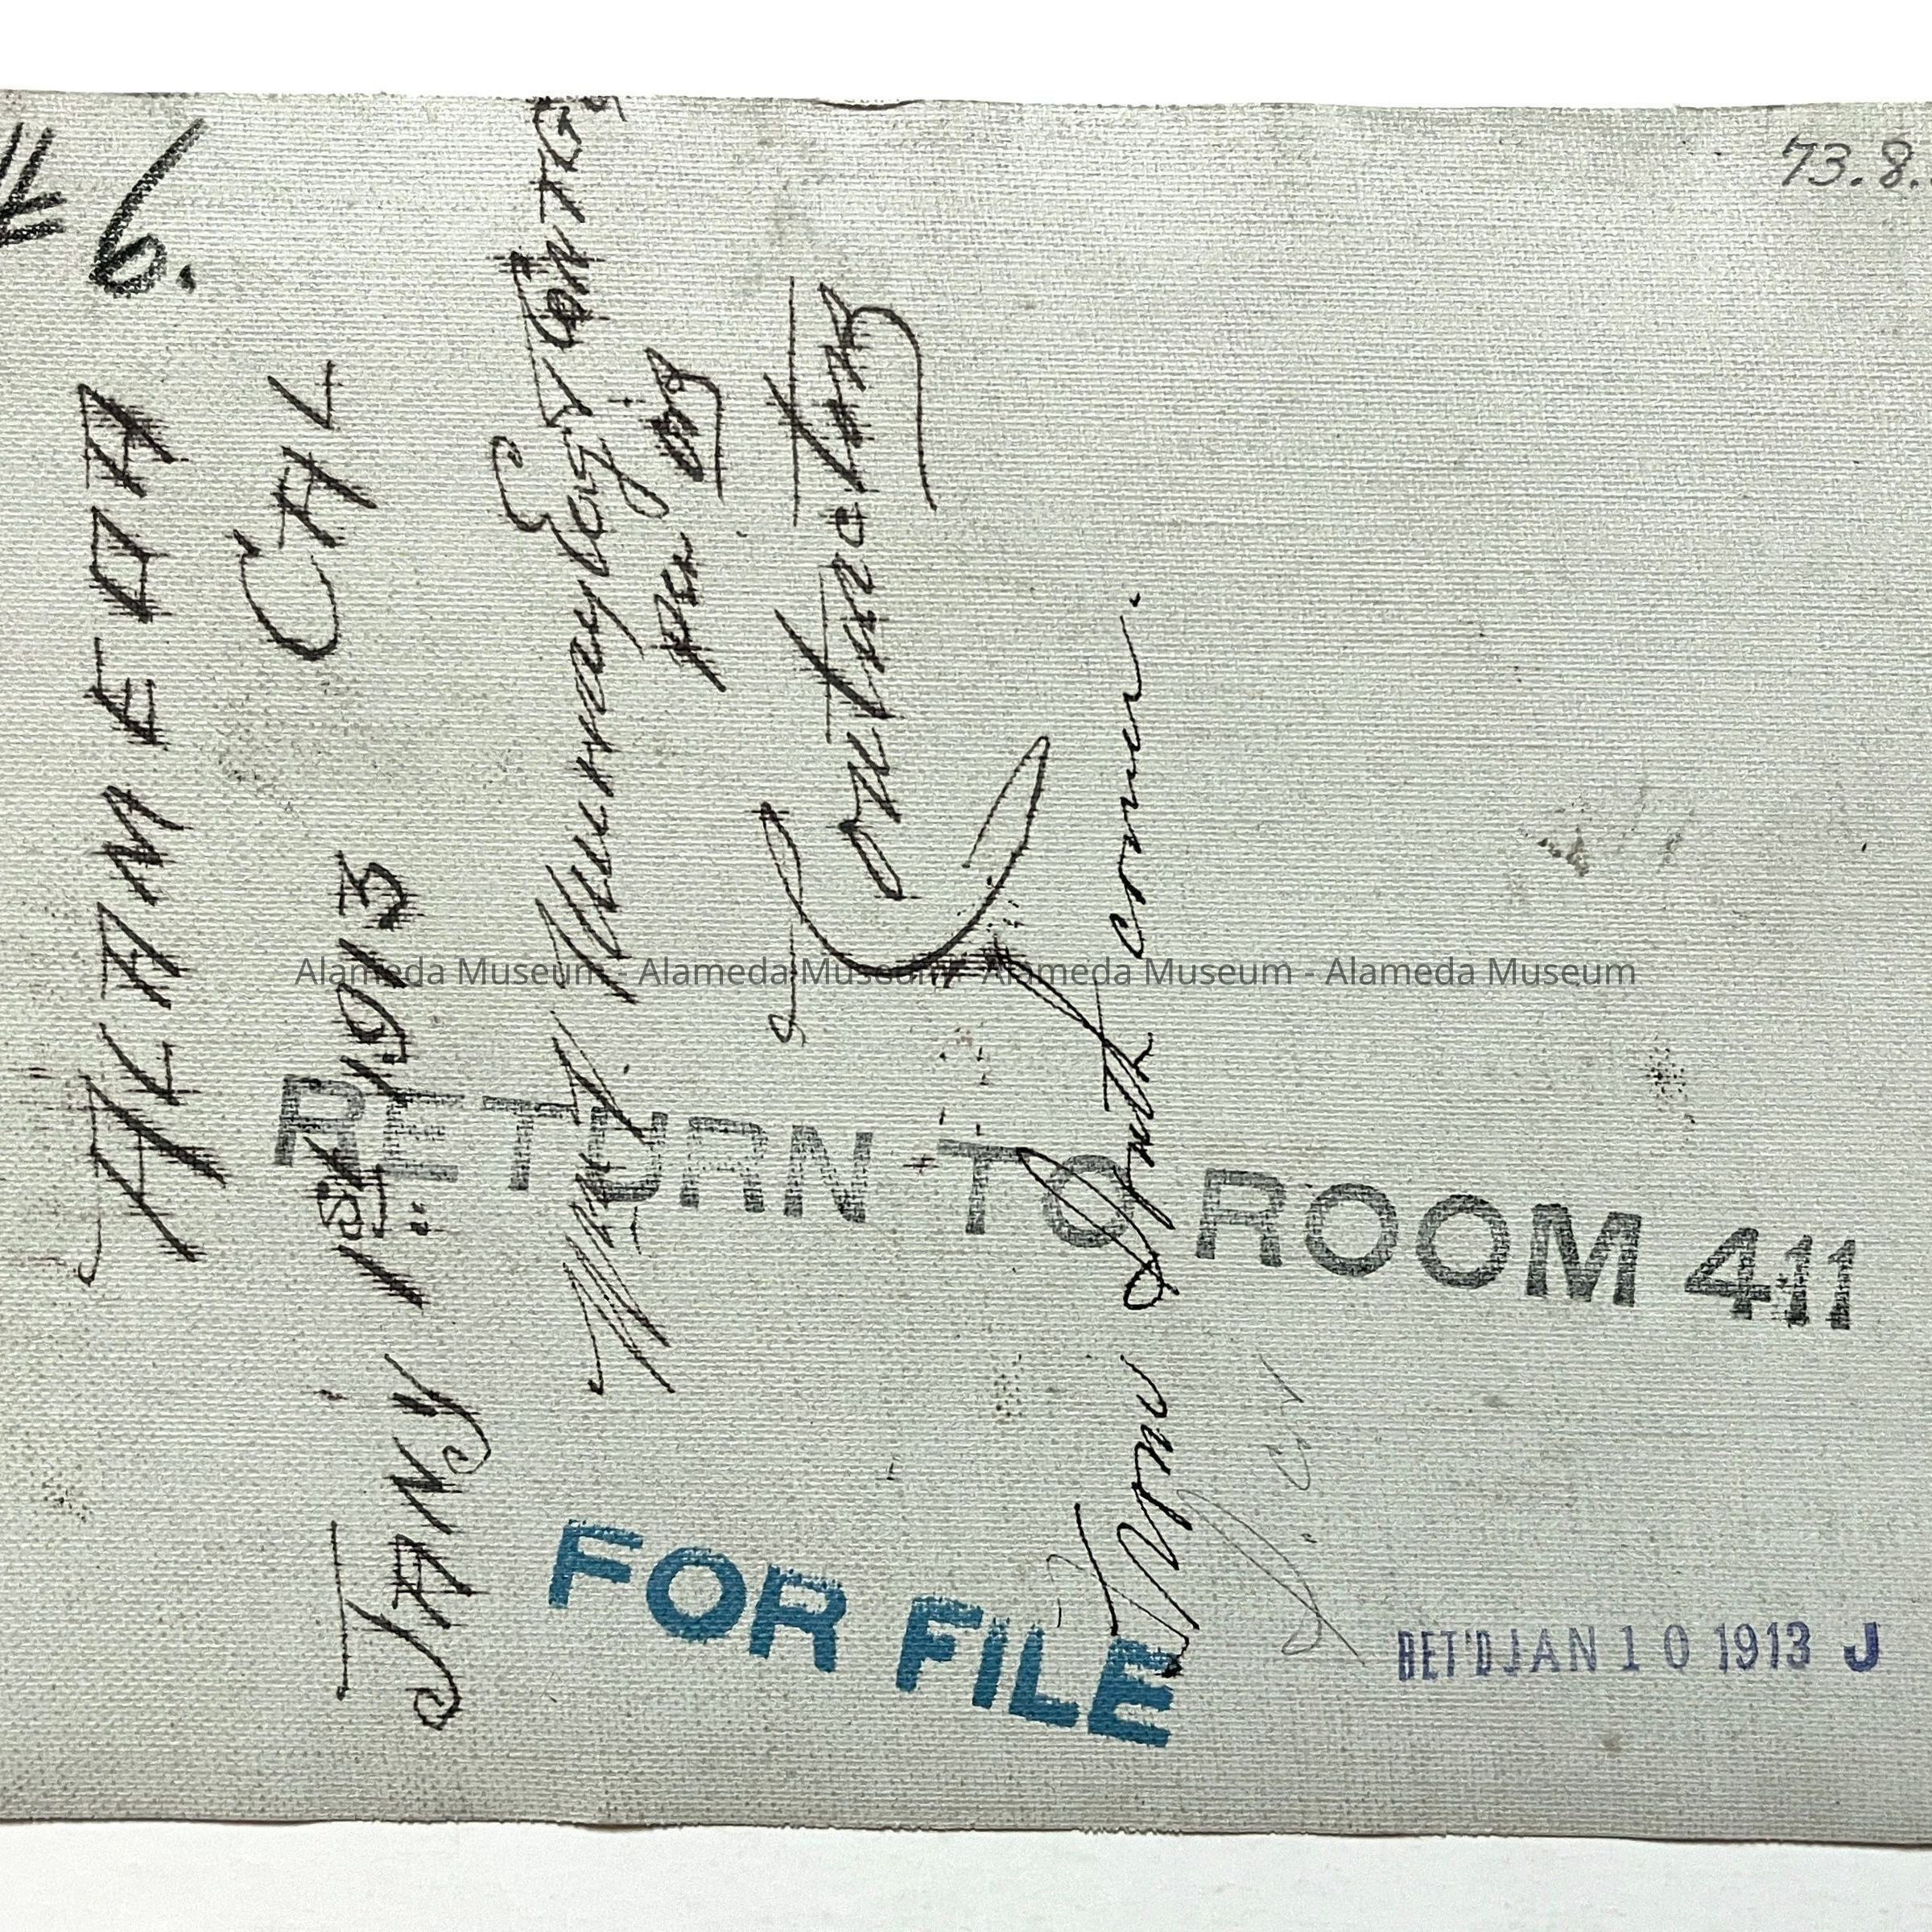 # 6.
73.8.
ALAMEDA
CAL
JANY 1st 1913
Wm. J. Murray
Contractor
From South corner.
RETURN TO ROOM 411
FOR FILE
RET'D JAN 10 1913 J
Alameda Museum - Alameda Museum - Alameda Museum - Alameda Museum